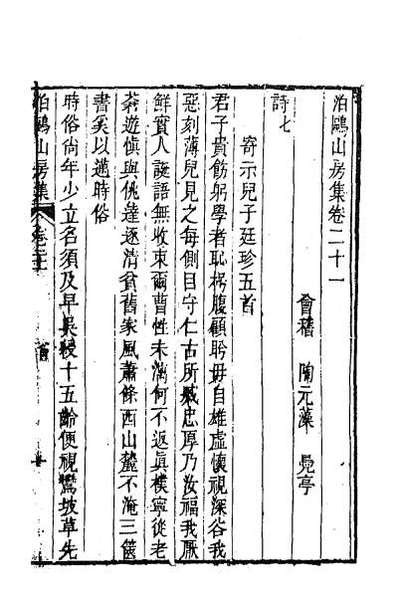 泊鷗山房集卷二十一
會稽 陶元藻 鳧亭
詩七
寄示兒子廷珍五首
君子貴飭躬學者恥枵腹顧聆毋自雄虛懷視深谷我
惡刻薄兒見之每側目守仁古所臧忠厚乃汝福我厭
鮮實人誕語無收束爾曹性未漓何不返眞樸寧從老
茶遊愼與佻達逐清貧舊家風蕭條西山麓不淹三篋
書奚以邁時俗
時俗尙年少立名須及早吳 十五齡便視鸞坡草先
泊鷗山房集 卷二十一